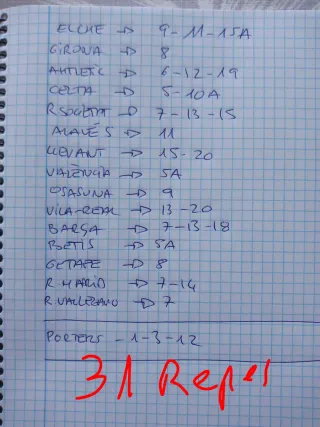 ELCHE → 9-11-15A
GIRONA → 8
ATHLETIC → 6-12-19
CELTA → 5-10A
R SOCIETAT → 7-13-15
ALAVÉS → 11
LLEVANT → 15-20
VALÈNCIA → 5A
OSASUNA → 9
VILA-REAL → 13-20
BARÇA → 7-13-18
BETIS → 5A
GETAFE → 8
R MADRID → 7-14
R VALLECANO → 7
PORTERS - 1-3-12
31 Repes